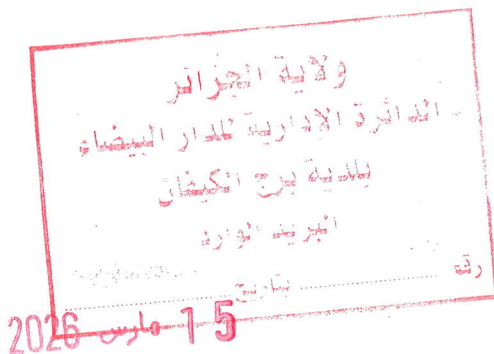 ولاية الجزائر
الدائرة الإدارية للدار البيضاء
بلدية برج الكيفان
البريد الوارد
رقم
بتاريخ
15 مارس 2026